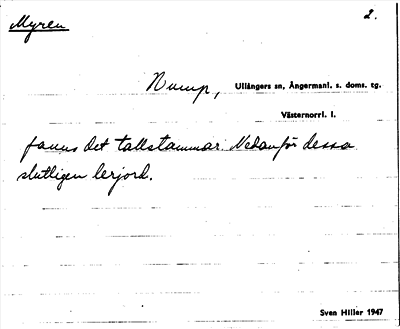 Myren
2.
Nump, Ullångers sn, Ångermanl. s. doms. tg.
Västernorrl. l.
fanns det tallstammar. Nedanför dessa
slutligen lerjord.
Sven Hiller 1947